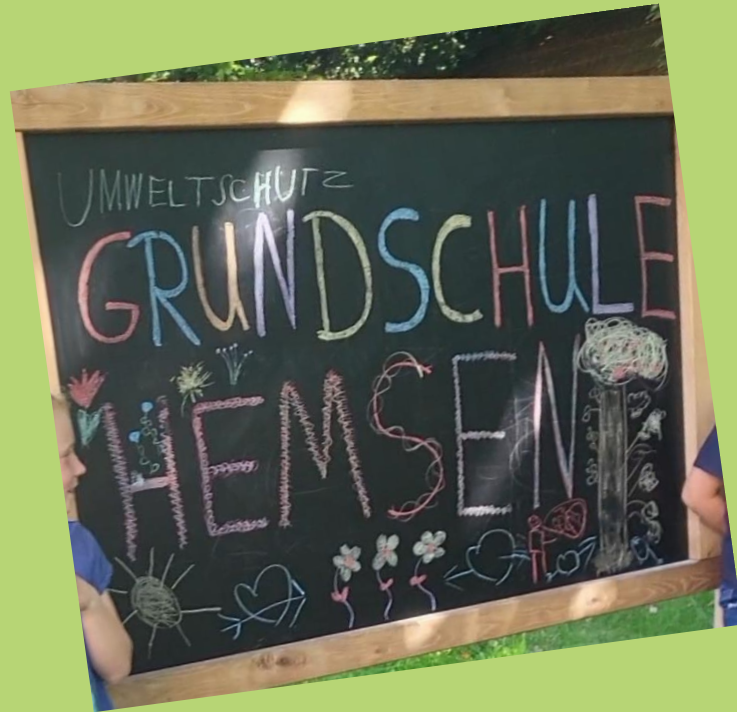 UMWELTSCHUTZ
GRUNDSCHULE
HEMSEN